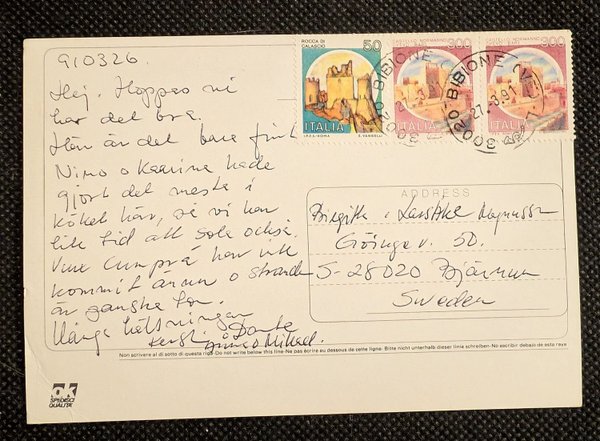 910326.
Hej. Hoppas ni
har det bra.
Här är det bara fint
Nino o Kaarina hade
gjort det mesta i
köket här, så vi har
lite tid att sola också.
kommit ännu o stranden
är ganska tom.
Många hälsningar
Kersti Dante
o Mikael.
ROCCA DI
CALASCIO
50
ITALIA
I.P.Z.S.-ROMA
E. VANGELLI
CASTELLO NORMANNO
300
ITALIA
CASTELLO NORMANNO
300
ITALIA
30020-BIBIONE (V
27.3.91
30020-BIBIONE
27.3.91
ADDRESS
Birgitta o Magnusson
Göingev. 50.
S-28020 Bjärnum
Sweden
Non scrivere al di sotto di questa riga-Do not write below this line-Ne pas écrire au dessous de cette ligne- Bitte nicht unterhalb dieser linie schreiben-No escribir debajo de esta raya
OK
SPECIDCI
QUALITÉ